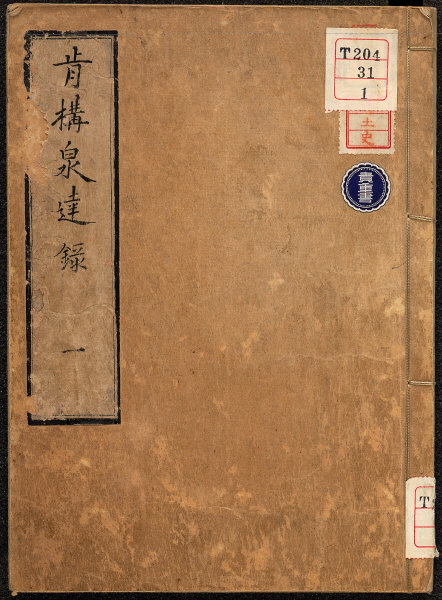 肯構泉達録 一
T204
31
1
土史
貴重書
T